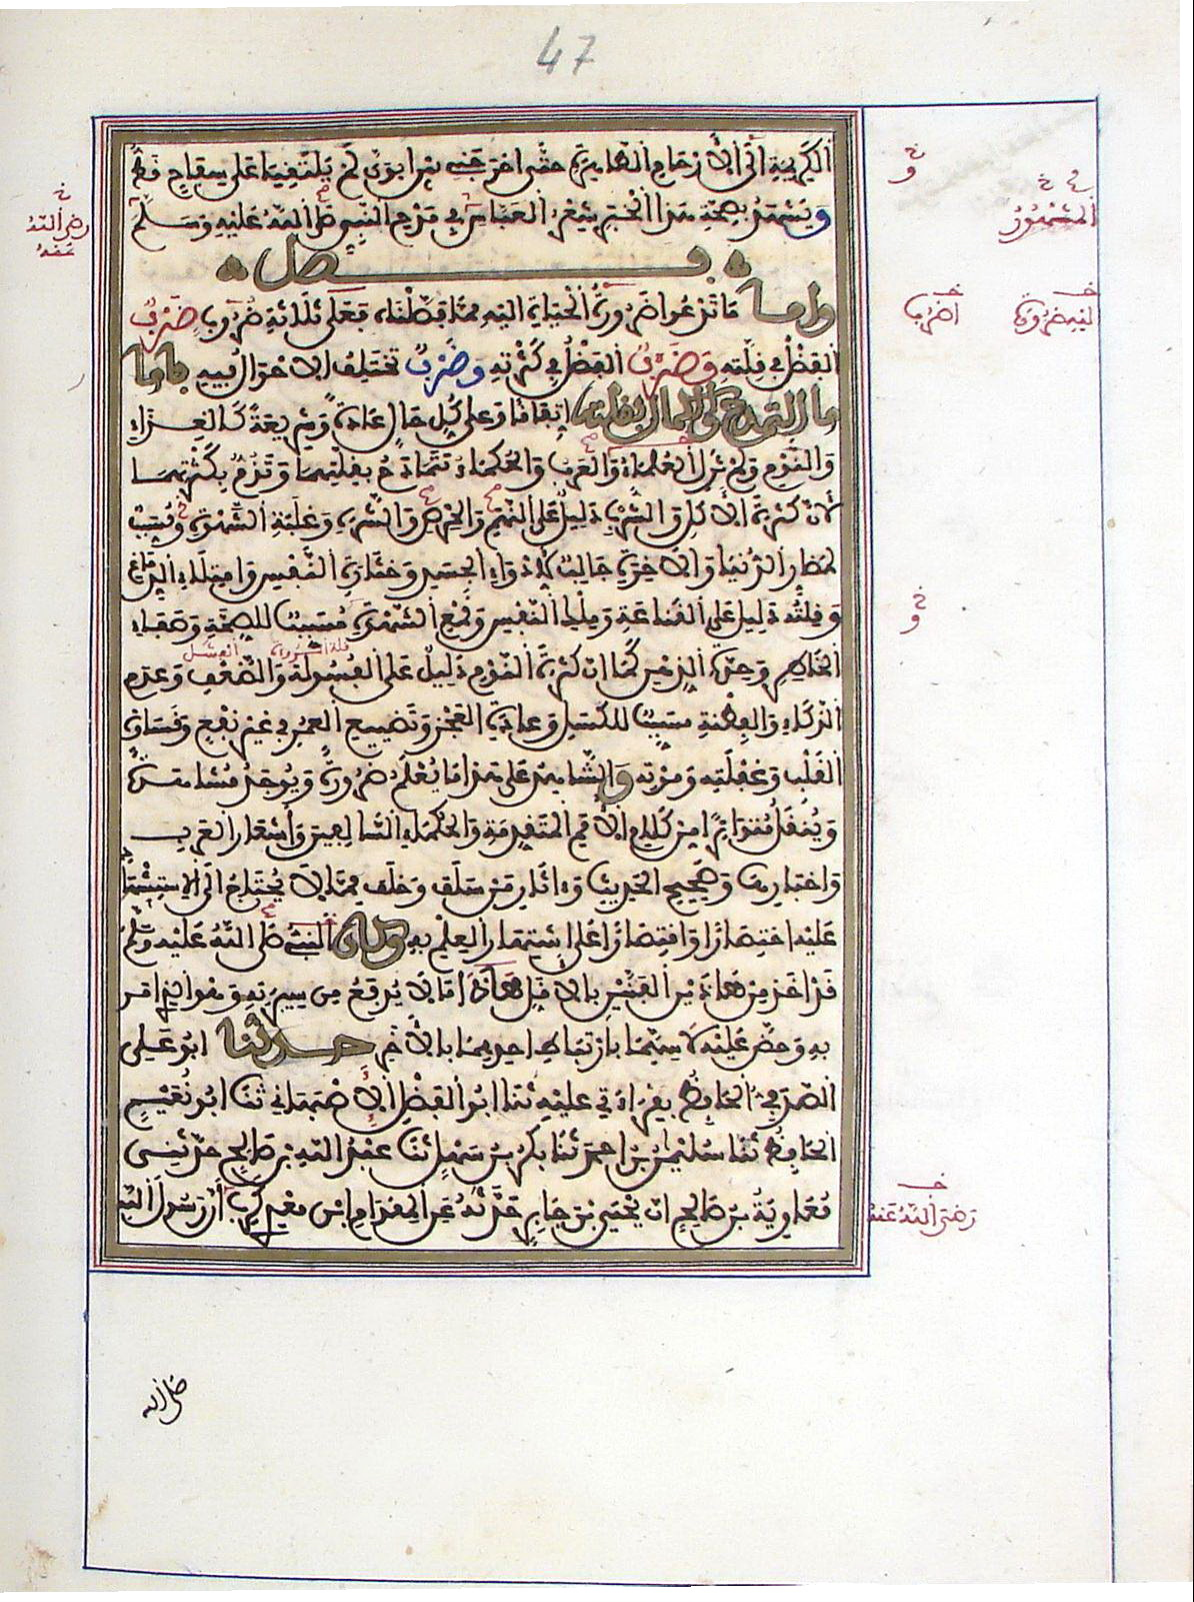 47
الكريمة الى الأرحام الطاهرة حتى اخرجني من ابوي لم يلتقيا على سفاح قط
ويشهد بصحة هذا الخبر شعر العباس في مدح النبي صلى الله عليه وسلم
فصل
واما ما تدعوا ضرورة الحياة اليه مما فصلناه فعلى ثلاثة ضروب ضرب
الفضل في قلته وضرب الفضل في كثرته وضرب تختلف الاحوال فيه فاما
ما التمدح والكمال بقلته اتفاقا وعلى كل حال عادة وشريعة كالغذاء
والنوم ولم تزل العلماء والعرب والحكماء تتمادح بقلتهما وتذم بكثرتهما
لأن كثرة الأكل والشرب دليل على النهم والحرص والشره وغلبة الشهوة ومسبب
لمضار الدنيا والآخرة جالب لأدواء الجسد وخثارة النفس وامتلاء الدماغ
وقلته دليل على القناعة وملك النفس وقمع الشهوة مسبب للصحة وصفاء
الخاطر وحدة الذهن كما ان كثرة النوم دليل على الفسولة والضعف وعدم
الذكاء والفطنة مسبب للكسل وعادة العجز وتضييع العمر في غير نفع وقساوة
القلب وغفلته وموته والشاهد على هذا ما يعلم ضرورة ويوجد مشاهدة
وينقل متواترا من كلام الأمم المتقدمة والحكماء السالفين وأشعار العرب
واخبارها وصحيح الحديث وءاثار من سلف وخلف مما لا يحتاج الى الاستشهاد
عليه اختصارا واقتصارا على اشتهار العلم به وكان النبي صلى الله عليه وسلم
قد اخذ من هاذين الفنين بالاقل هاذا ما لا يدفع من سيرته وهو الذي امر
به وحض عليه لا سيما بارتباط احدهما بالأخر حدثنا ابو علي
الصدفي الحافظ بقراءتي عليه ثنا ابو الفضل الأصبهاني ثنا ابو نعيم
الحافظ ثنا سليمن بن احمد ثنا بكر بن سهل ثنا عبد الله بن صالح حدثني
معاوية بن صالح ان يحيى بن جابر حدثه عن المقدام ابن معدي كرب أن رسول الله
صلى الله
رضي الله
عنه
خ
و
المشهور
لنيه ضرورة
اضرب
خ
و
قلة المروءة
الفشل
رضى الله عنه